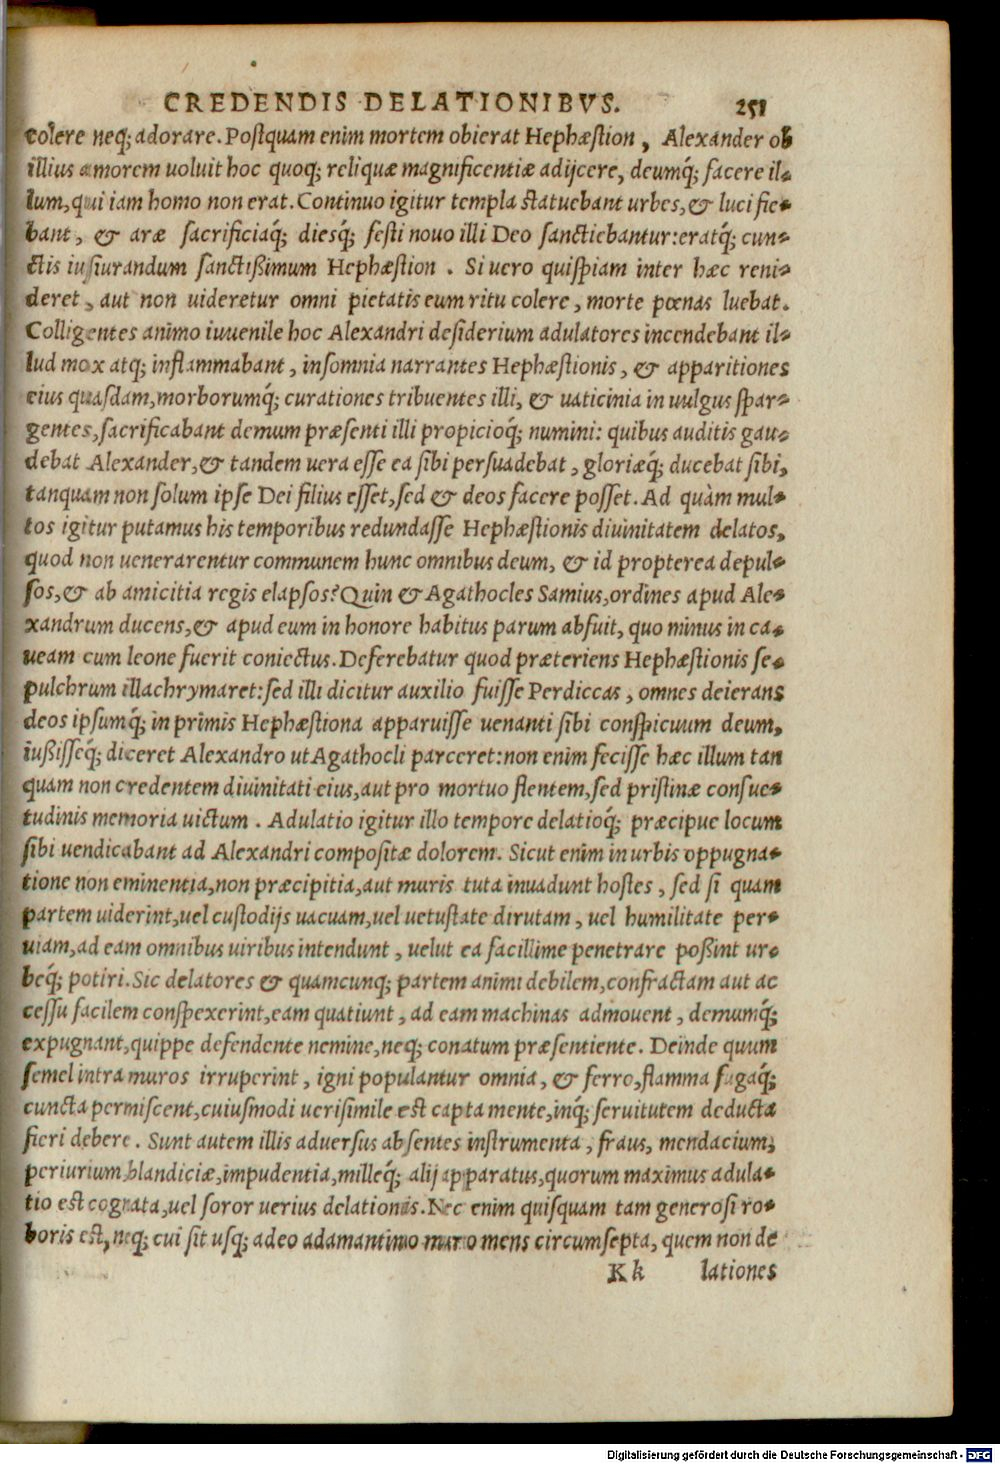 CREDENDIS DELATIONIBVS. 251
colere neq; adorare. Postquam enim mortem obierat Hephæstion, Alexander ob
illius amorem uoluit hoc quoq; reliquæ magnificentiæ adijcere, deumq́; facere il-
lum, qui iam homo non erat. Continuo igitur templa statuebant urbes, & luci fie-
bant, & aræ sacrificiaq́; diesq́; festi nouo illi Deo sanctiebantur: eratq́; cun-
ctis iusiurandum sanctißimum Hephæstion. Si uero quispiam inter hæc reni-
deret, aut non uideretur omni pietatis eum ritu colere, morte pœnas luebat.
Colligentes animo iuuenile hoc Alexandri desiderium adulatores incendebant il-
lud mox atq; inflammabant, insomnia narrantes Hephæstionis, & apparitiones
eius quasdam, morborumq́; curationes tribuentes illi, & uaticinia in uulgus spar-
gentes, sacrificabant demum præsenti illi propicioq́; numini: quibus auditis gau-
debat Alexander, & tandem uera esse ea sibi persuadebat, gloriæq́; ducebat sibi,
tanquam non solum ipse Dei filius esset, sed & deos facere posset. Ad quàm mul-
tos igitur putamus his temporibus redundasse Hephæstionis diuinitatem delatos,
quod non uenerarentur communem hunc omnibus deum, & id propterea depul-
sos, & ab amicitia regis elapsos? Quin & Agathocles Samius, ordines apud Ale-
xandrum ducens, & apud eum in honore habitus parum abfuit, quo minus in ca-
ueam cum leone fuerit coniectus. Deferebatur quod præteriens Hephæstionis se-
pulchrum illachrymaret: sed illi dicitur auxilio fuisse Perdiccas, omnes deierans
deos ipsumq́; in primis Hephæstiona apparuisse uenanti sibi conspicuum deum,
iußisseq́; diceret Alexandro ut Agathocli parceret: non enim fecisse hæc illum tan
quam non credentem diuinitati eius, aut pro mortuo flentem, sed pristinæ consue-
tudinis memoria uictum. Adulatio igitur illo tempore delatioq́; præcipue locum
sibi uendicabant ad Alexandri compositæ dolorem. Sicut enim in urbis oppugna-
tione non eminentia, non præcipitia, aut muris tuta inuadunt hostes, sed si quam
partem uiderint, uel custodijs uacuam, uel uetustate dirutam, uel humilitate per-
uiam, ad eam omnibus uiribus intendunt, uelut ea facillime penetrare poßint ur-
beq́; potiri. Sic delatores & quamcunq; partem animi debilem, confractam aut ac
cessu facilem conspexerint, eam quatiunt, ad eam machinas admouent, demumq́;
expugnant, quippe defendente nemine, neq; conatum præsentiente. Deinde quum
semel intra muros irruperint, igni populantur omnia, & ferro, flamma fugaq́;
cuncta permiscent, cuiusmodi uerisimile est capta mente, inq́; seruitutem deducta
fieri debere. Sunt autem illis aduersus absentes instrumenta, fraus, mendacium,
periurium, blandiciæ, impudentia, milleq́; alij apparatus, quorum maximus adula-
tio est cognata, uel soror uerius delationis. Nec enim quisquam tam generosi ro-
boris est, neq; cui sit usq; adeo adamantino muro mens circumsepta, quem non de
Kk lationes
Digitalisierung gefördert durch die Deutsche Forschungsgemeinschaft - DFG